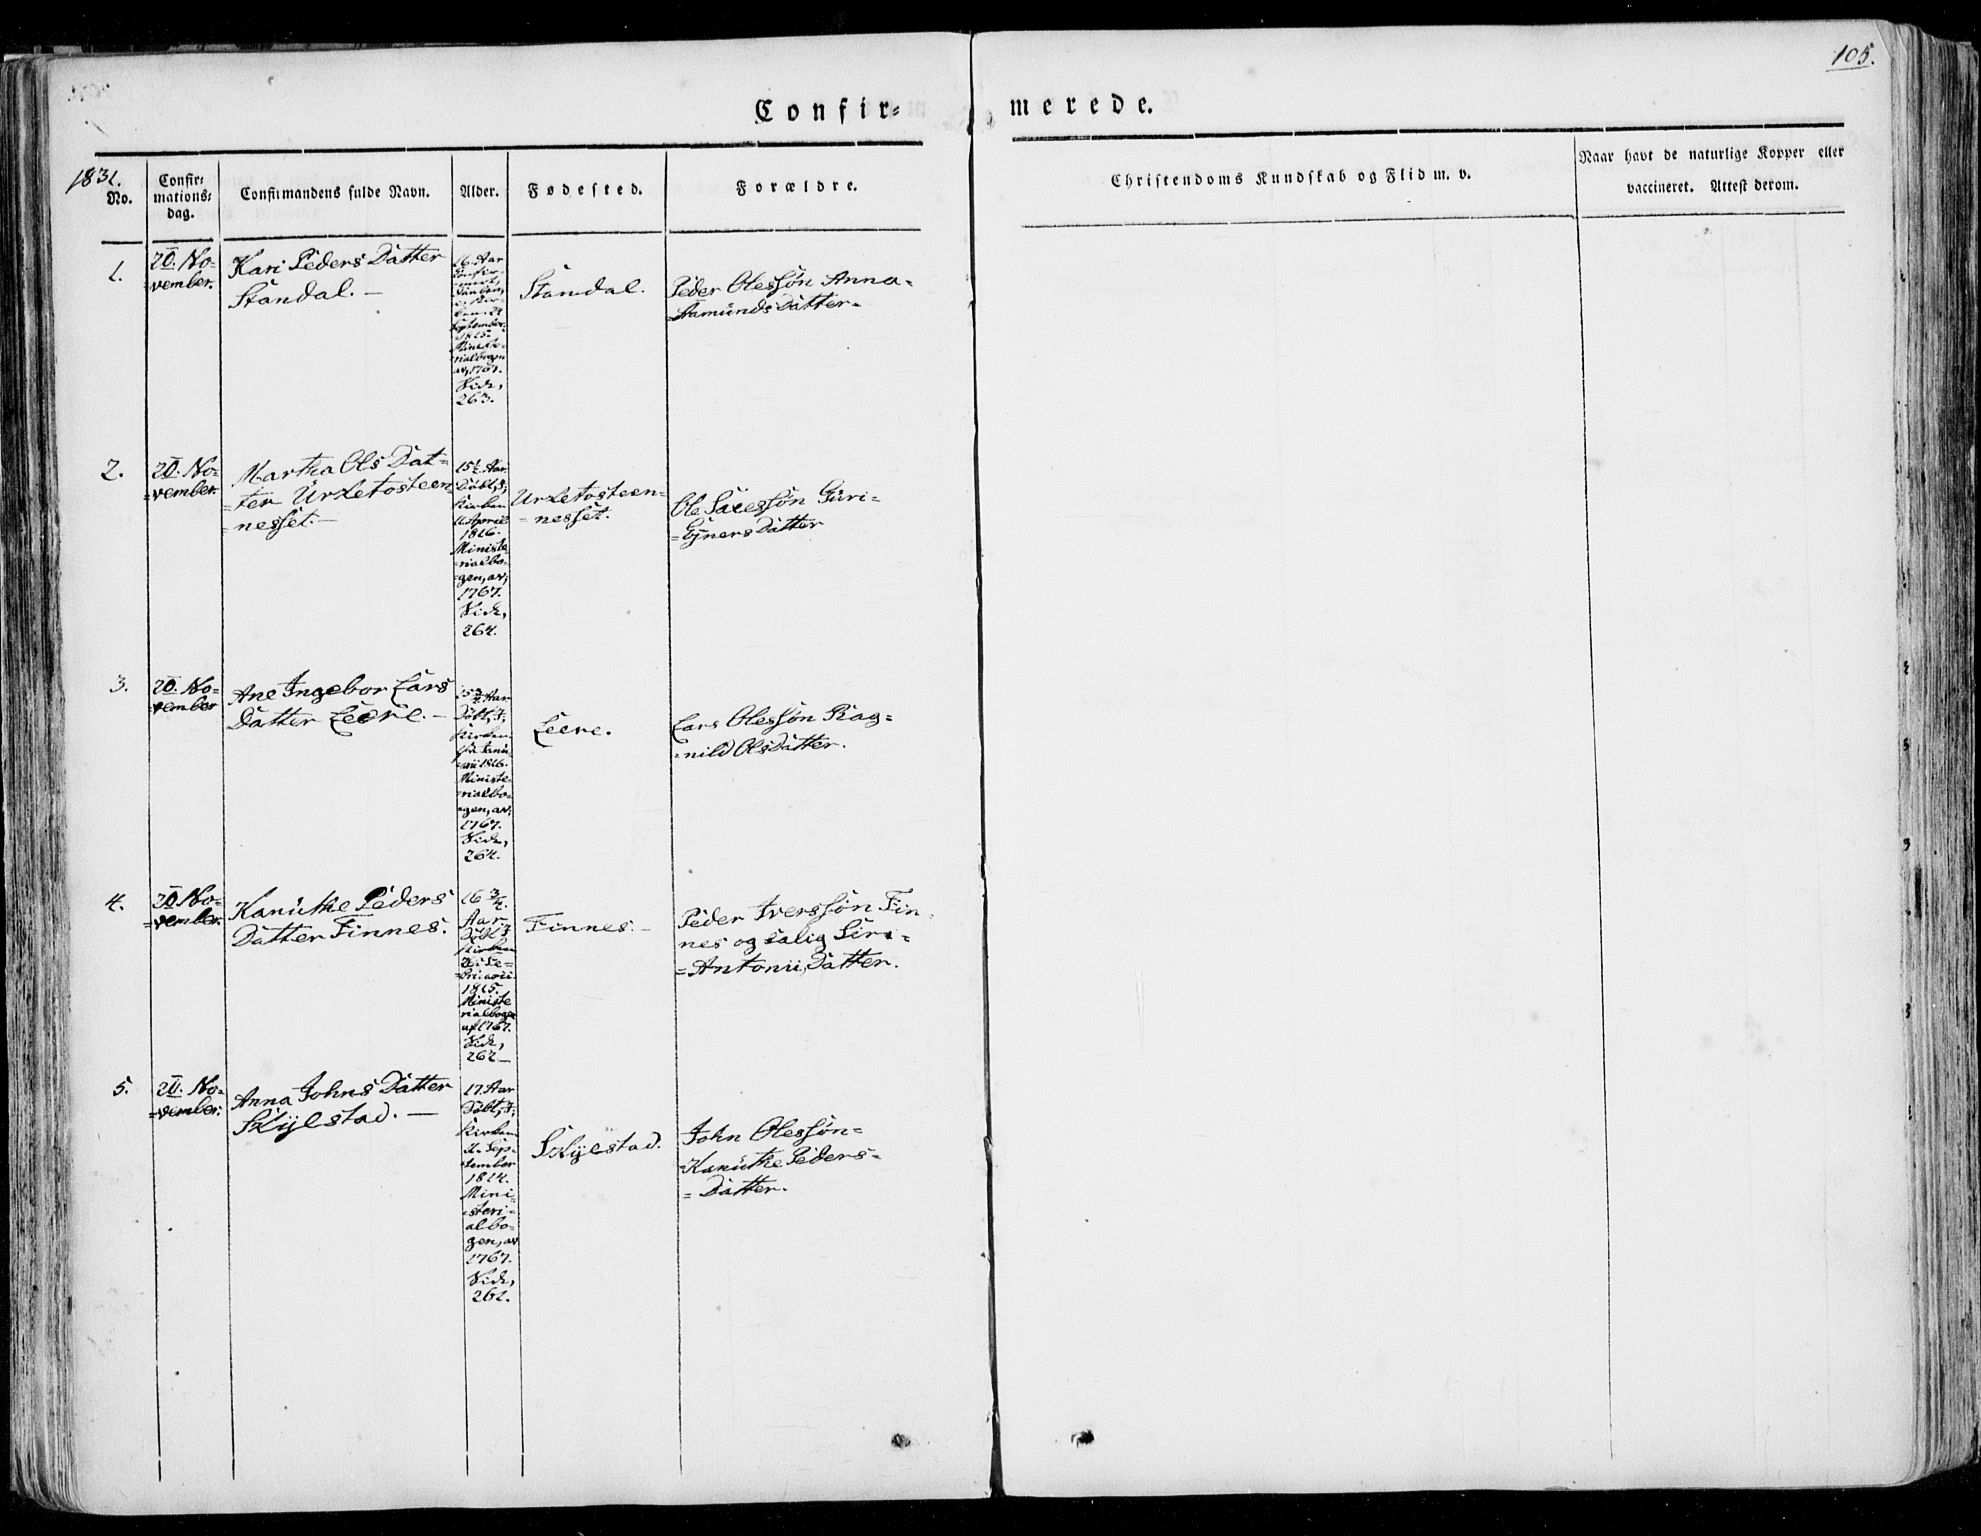 105.
Confir=
merede.
1831.
No.
Confir=
mations=
dag.
Confirmandens fulde Navn.
Alder.
Fødested.
Forældre.
Christendoms Kundskab og Flid m. v.
Naar havt de naturlige Kopper eller
vaccineret. Attest derom.
1.
20. No=
vember.
Kari Peders Datter
Standal. —
16. Aar
September
1815.
Ministe=
rialbogen
av, 1767.
Side,
263.
Standal.
Peder Olessøn Anna=
Datter=
2.
20. No=
=vember.
Martha Ols Dat=
=ter Urketosteen=
=nesset. —
15½ Aar.
Døbt, I,
Kirken
April
1816.
Ministe=
=rialbo=
=gen, av,
1767.
Side,
264.
Urketosteen=
=nesset.
Ole Guri=
=Ejners Datter
3.
20. No=
=vember
Ane Ingebor Lars
Datter Leere. —
15¾ Aar
Døbt, I,
Kirken
1816.
Ministe=
=rialbo=
=gen, av,
1767.
Side,
264.
Leere.
Lars Olessøn Rag=
=nild Olsdatter.
4.
20 No=
=vember.
Kanuthe Peders
Datter Finnes.
16 ¾
Aar
Døbt I
Kirken
1815.
Ministe
rialboge
af 1767.
Side,
262 —
Finnes. —
Peder Iverssøn Fin=
nes og salig Siri=
=Antonii, Datter.
5.
20. No=
=vember.
Anna Johns Datter
Skylstad. —
17. Aar
Døbt, I,
Kirken
Sep=
=tember
1814.
Mini=
=steri=
albo=
gen, av
1767.
Side,
262.
Skylstad.
John Olessøn=
=Kanuthe Peders=
=Datter.